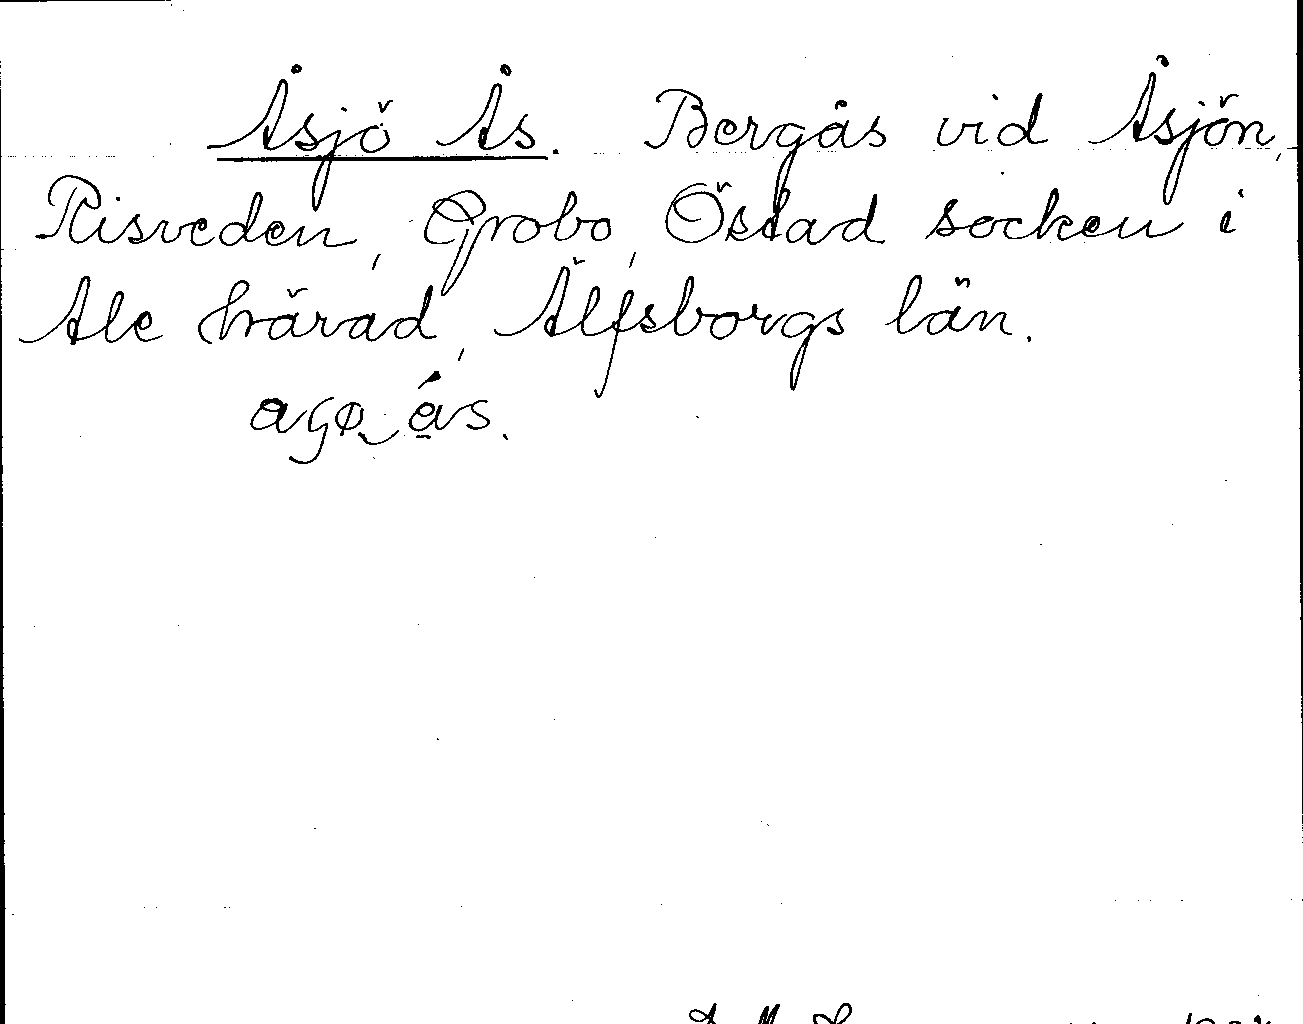 Åsjö Ås. Bergås vid Åsjön,
Risveden, Grobo, Östad socken i
Ale härad, Älfsborgs län.